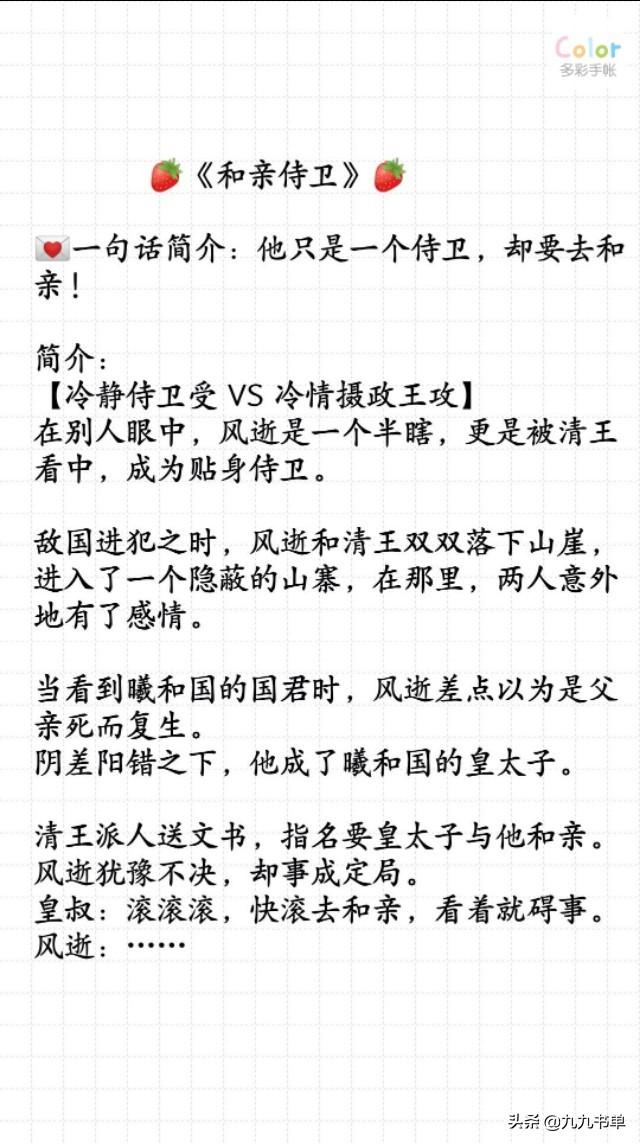 Color
多彩手帐
《和亲侍卫》
一句话简介：他只是一个侍卫，却要去和
亲！
简介：
【冷静侍卫受 VS 冷情摄政王攻】
在别人眼中，风逝是一个半瞎，更是被清王
看中，成为贴身侍卫。
敌国进犯之时，风逝和清王双双落下山崖，
进入了一个隐蔽的山寨，在那里，两人意外
地有了感情。
当看到曦和国的国君时，风逝差点以为是父
亲死而复生。
阴差阳错之下，他成了曦和国的皇太子。
清王派人送文书，指名要皇太子与他和亲。
风逝犹豫不决，却事成定局。
皇叔：滚滚滚，快滚去和亲，看着就碍事。
风逝：……
头条 @九九书单